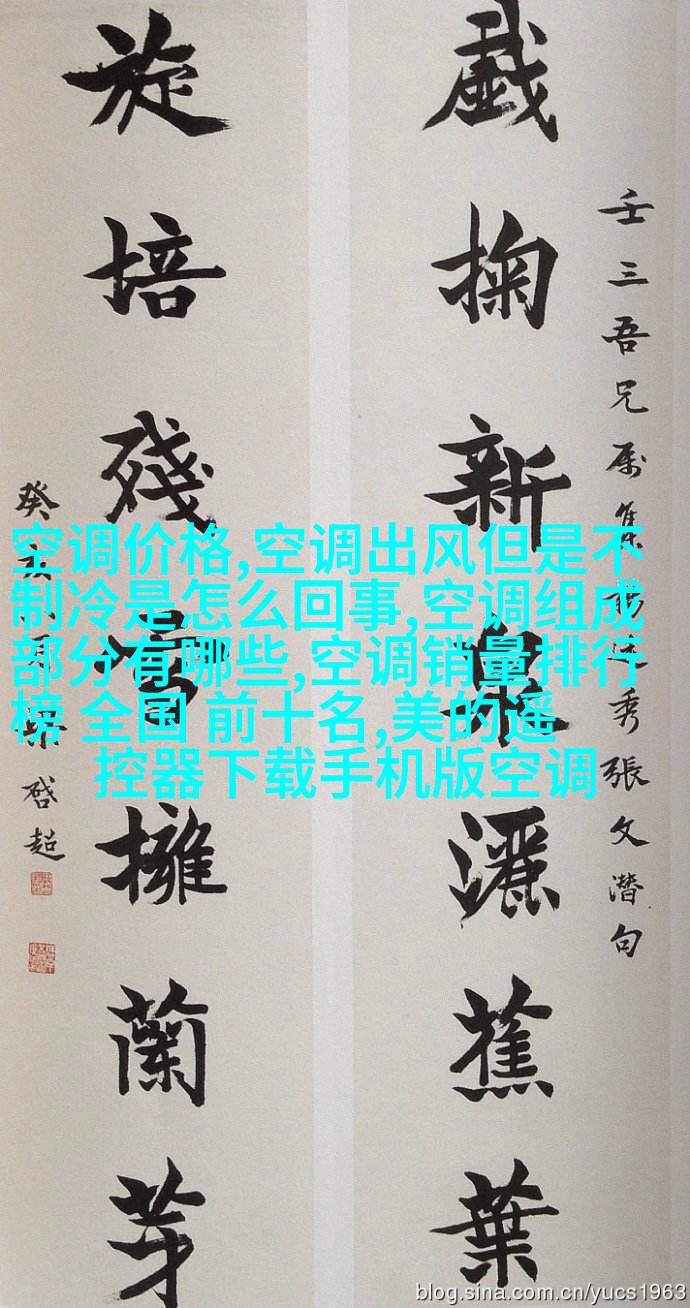 戲掬新泉灑蕉葉
旋培殘雪擁蘭芽
壬三吾兄属集楊廷秀張文潛句
癸亥 梁啓超
空调价格,空调出风但是不
制冷是怎么回事,空调组成
部分有哪些,空调销量排行
榜 全国 前十名,美的遥
控器下载手机版空调
blog.sina.com.cn/yucs1963